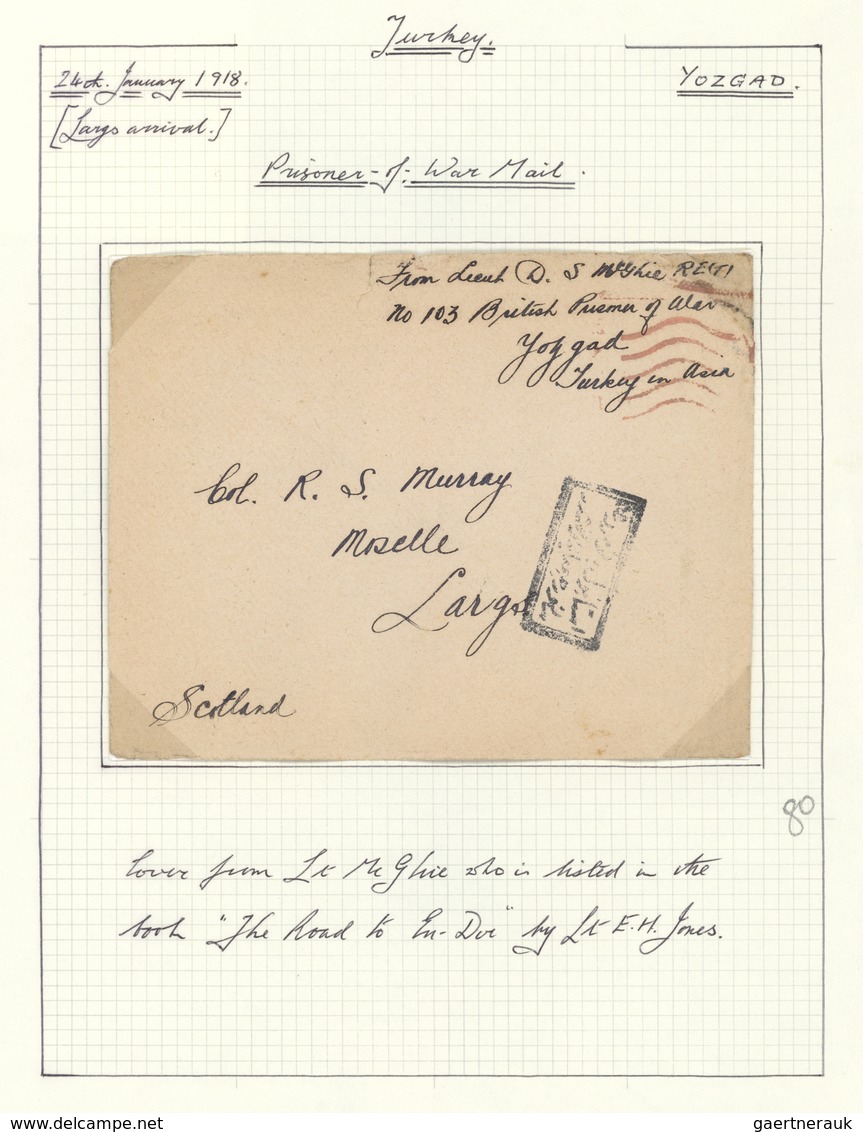 Turkey.
24th. January 1918.
YOZGAD.
[Largs arrival.]
Prisoner-of-War Mail.
From Lieut D. S McGhie RE(T)
No 103 British Prisoner of War
Yozgad
Turkey in Asia
Col. R. S. Murray
Moselle
Largs
Scotland
80
Cover from Lt McGhie who is listed in the
book "The Road to En-Dor" by Lt E.H. Jones.
www.delcampe.net
gaertnerauk